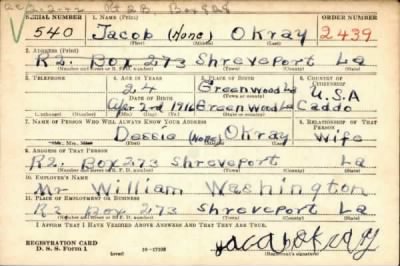 R 2 B, Box 828
SERIAL NUMBER 1. NAME (Print) ORDER NUMBER
540 Jacob (None) Okray 2439
(First) (Middle) (Last)
2. ADDRESS (Print)
R2. Box 273 Shreveport La
(Number and street or R. F. D. number) (Town) (County) (State)
3. TELEPHONE 4. AGE IN YEARS 5. PLACE OF BIRTH 6. COUNTRY OF CITIZENSHIP
24 Greenwood La U.S.A
DATE OF BIRTH (Town or county)
Apr 2nd 1916 Greenwood La Caddo
(Exchange) (Number) (Mo.) (Day) (Yr.) (State or country)
7. NAME OF PERSON WHO WILL ALWAYS KNOW YOUR ADDRESS 8. RELATIONSHIP OF THAT PERSON
Dessie (None) Okray Wife
(Mr., Mrs., Miss) (First) (Middle) (Last)
9. ADDRESS OF THAT PERSON
R2. Box 273 Shreveport La
(Number and street or R. F. D. number) (Town) (County) (State)
10. EMPLOYER'S NAME
Mr William Washington
11. PLACE OF EMPLOYMENT OR BUSINESS
R2 Box 273 Shreveport La
(Number and street or R. F. D. number) (Town) (County) (State)
I AFFIRM THAT I HAVE VERIFIED ABOVE ANSWERS AND THAT THEY ARE TRUE.
REGISTRATION CARD
D. S. S. Form 1 16-17105
(Registrant's signature)